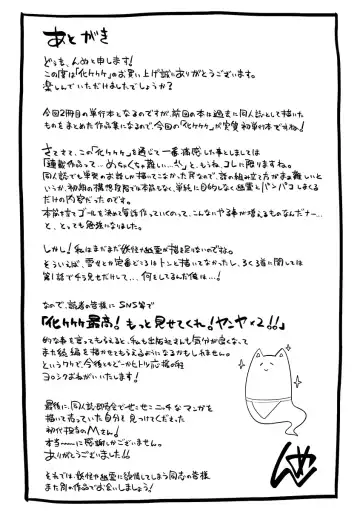 あとがき
どうも、んぬと申します!
この度は「化ケケケ」のお買い上げ誠にありがとうございます。
楽しんでいただけましたでしょうか?
今回2冊目の単行本となるのですが、前回の本は過去に同人誌として描いた
ものをまとめた作品集になるので、今回の「化ケケケ」が実質初単行本ですね!
さてさて、この「化ケケケ」を通じて一番痛感した事としましては
「連載作品って…めちゃくちゃ難しい…!」と、もうね、コレに限りますね。
同人誌でも単発のお話しか描いてこなかった民なので、話の組み立て方がまぁ難しいと
いうか、初期の構想段階では本筋もなく、単純に目的もなく幽霊とパンパコしまくる
だけの内容だったのです。
本筋を立てゴールを決めて毎話作っていくのって、こんなにやる事が増えるものなんだナー…
と、とっても勉強になりました。
しかし!私はまだまだ妖怪や幽霊が描き足りないのですね。
そういえば、雪女とか定番どころはトンと描いてなかったし、ろくろ首に関しては
第1話でチラ見せだけして…、何をしてるんだ俺は…!
なので、読者の皆様に SNS等で
「化ケケケ最高!もっと見せてくれ!ヤンヤ×2!!」
的な事を言ってもらえると、私も出版社さんも気分が良くなって
また続編を描かせてもらえるようになるかもしれません。
というワケで、今後ともどーかヒトツ応援の程
ヨロシクおねがいいたします!
最後に、同人誌即売会でせこせこニッチなマンガを
描いて売っていた自分を見つけてくださった
初代担当のMさん!
本当〜〜に感謝しかございません。
ありがとうございました!!
それでは、妖怪や幽霊に談慌してしまう同志の皆様
また別の作品でお会いしましょう!
んぬ